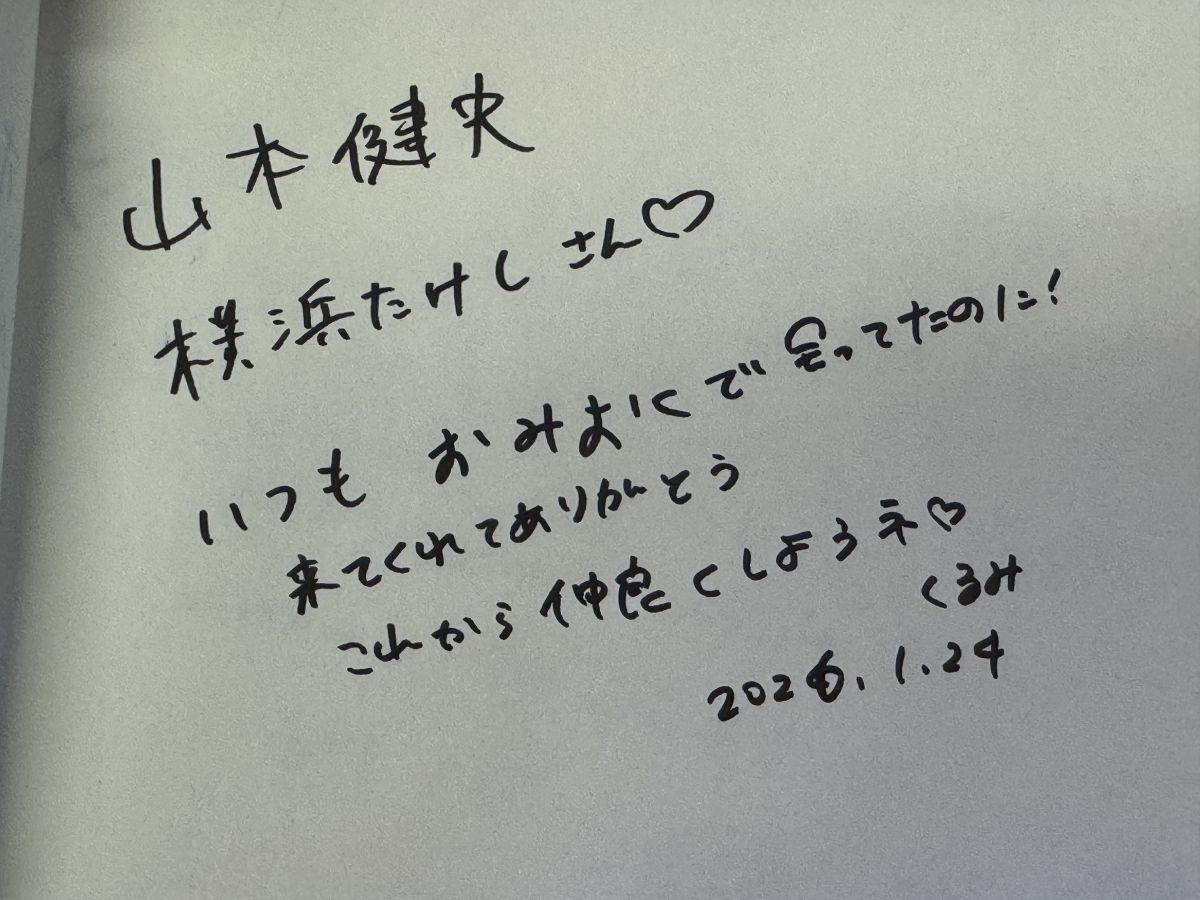 山本健史
横浜たけしさん♡
いつも おみおくで 会ってたのに!
来てくれてありがとう
これから仲良くしようネ♡
くるみ
2026.1.24